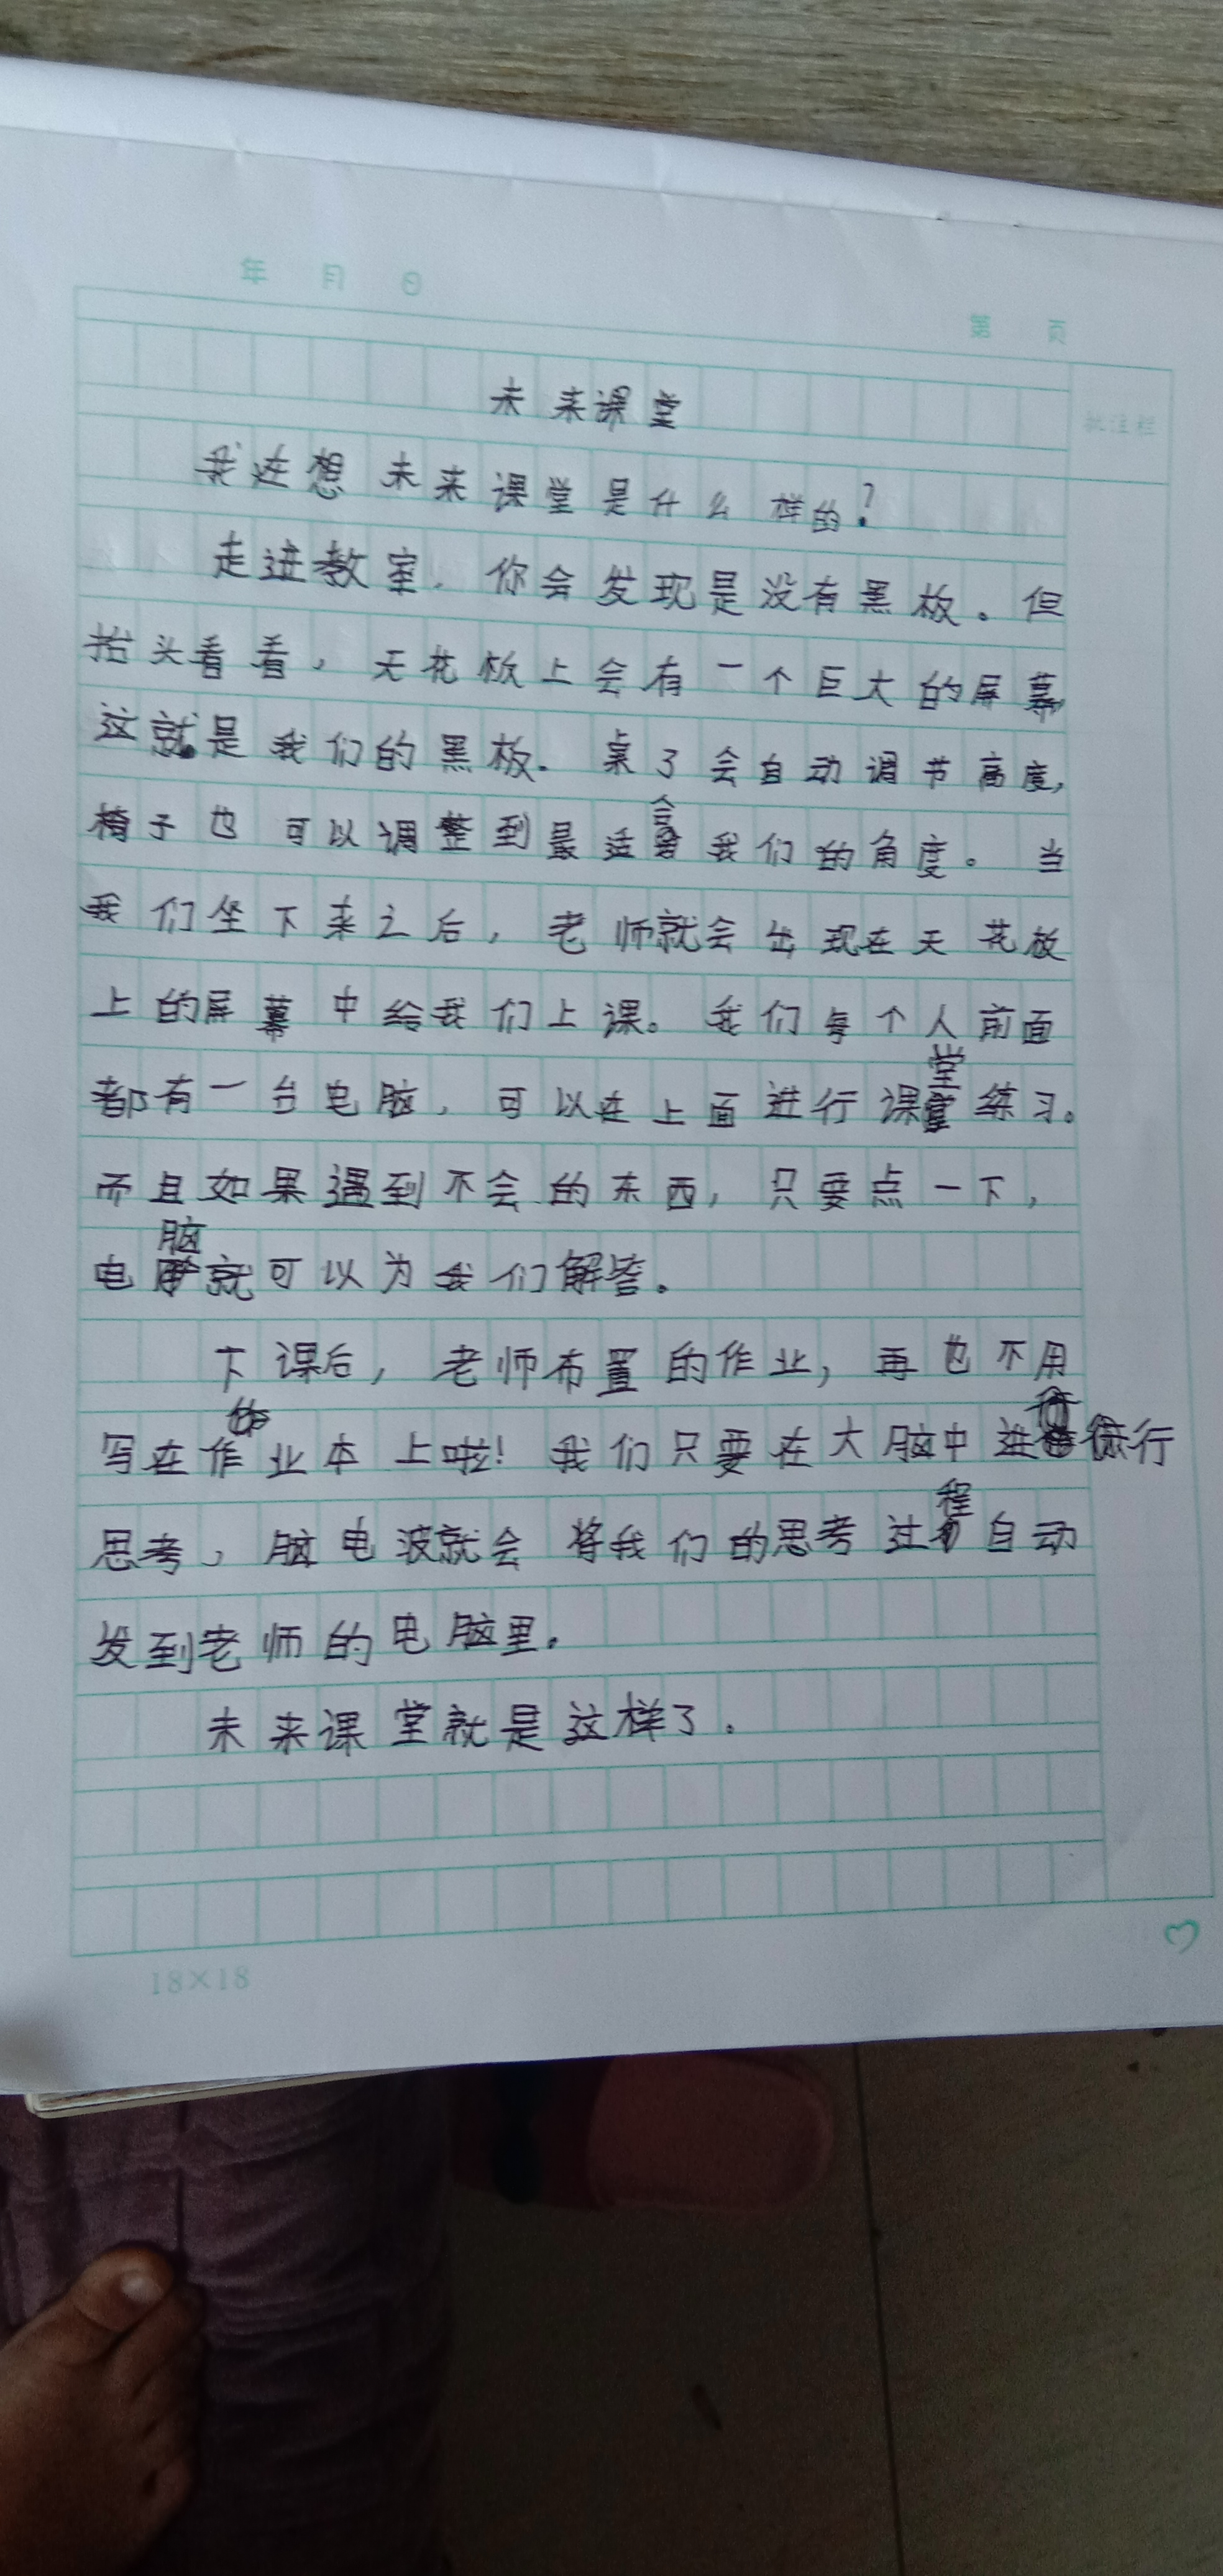 年 月 日
第 页
批注栏
未来课堂
我在想未来课堂是什么样的?
走进教室,你会发现是没有黑板。但
抬头看看,天花板上会有一个巨大的屏幕
这就是我们的黑板。桌子会自动调节高度,
椅子也可以调整到最适合我们的角度。当
我们坐下来之后,老师就会出现在天花板
上的屏幕中给我们上课。我们每个人前面
都有一台电脑,可以在上面进行课堂练习。
而且如果遇到不会的东西,只要点一下,
电脑就可以为我们解答。
下课后,老师布置的作业,再也不用
写在作业本上啦!我们只要在大脑中进行
思考,脑电波就会将我们的思考过程自动
发到老师的电脑里。
未来课堂就是这样了。
18×18